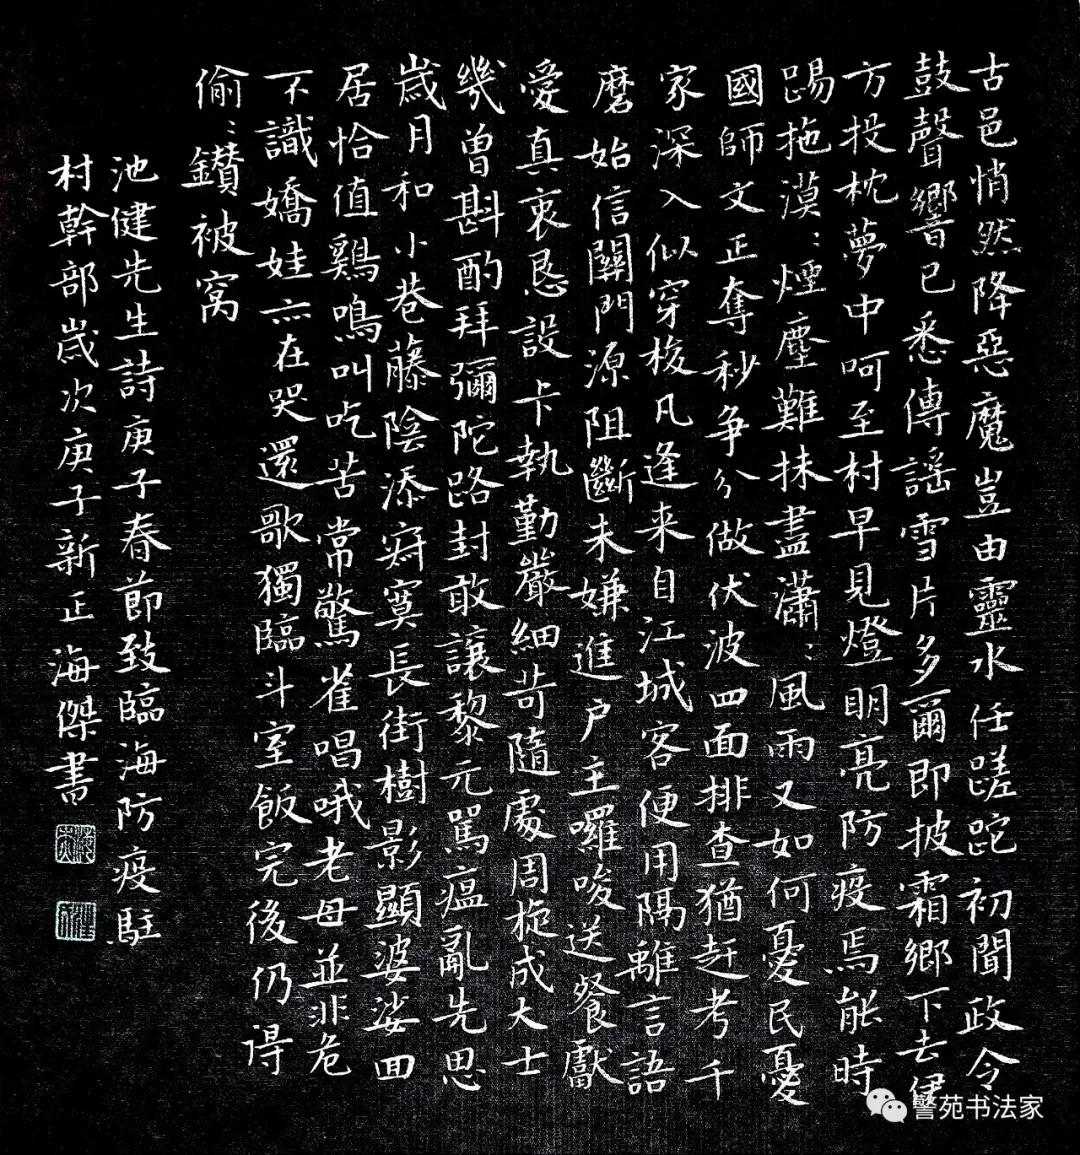 古邑悄然降惡魔豈由靈水任蹉跎初聞政令
鼓聲響已悉傳謠雪片多爾即披霜鄉下去
方投枕夢中呵至村早見燈明亮防疫焉能時
踢拖漠:煙塵難抹盡瀟:風雨又如何憂民憂
國師文正奪秒争分做伏波四面排查猶赶考千
家深入似穿梭凡逢来自江城客便用隔離言語
磨始信關門源阻斷未嫌進户主囉唆送餐獻
愛真衷恳設卡執勤嚴細苛隨處周旋成大士
幾曾斟酌拜彌陀路封敢讓黎元罵瘟亂先思
歲月和小巷藤陰添寂寞長街樹影顯婆娑回
居恰值鷄鳴叫吃苦常驚雀唱哦老母並非危
不識嬌娃亦在哭還歌獨臨斗室飯完後仍得
偷:鑽被窝
池健先生詩庚子春節致臨海防疫駐
村幹部歲次庚子新正海傑書
警苑书法家